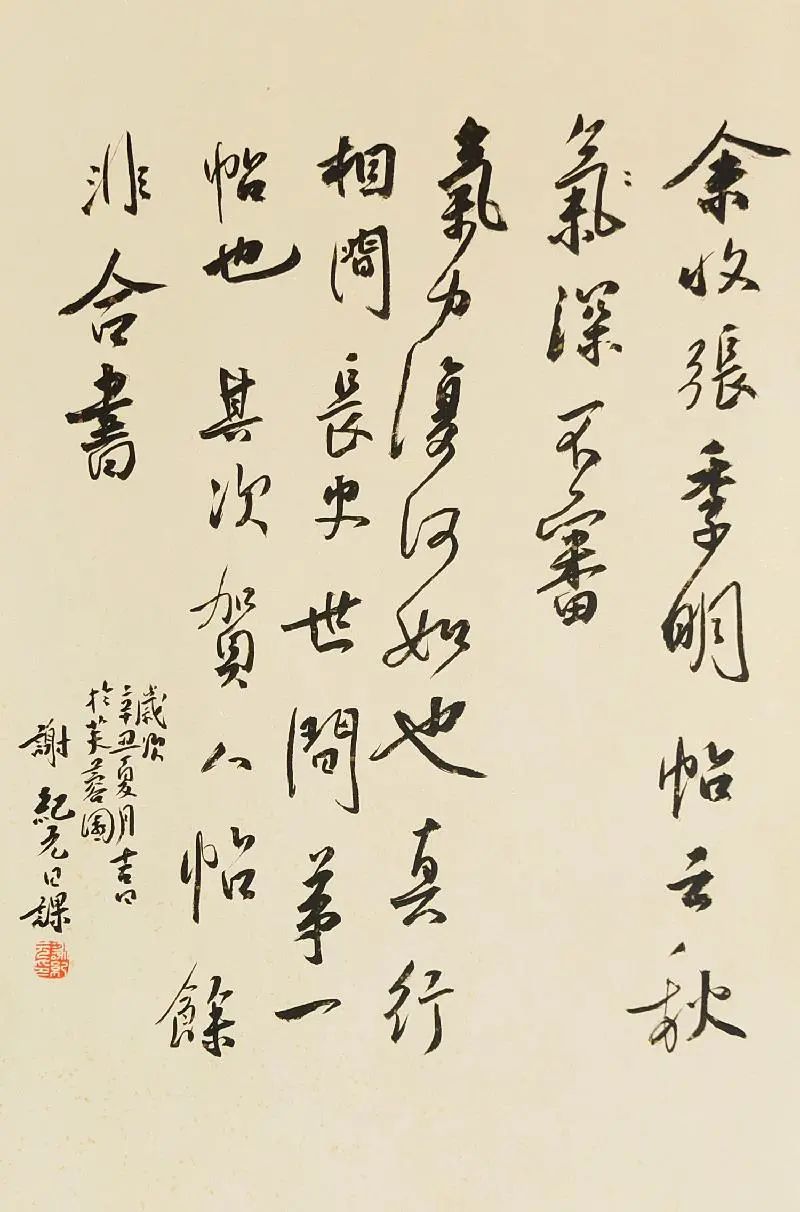 余收張季明帖云秋
氣深不審
氣力復何如也真行
相間長史世間第一
帖也其次賀八帖餘
非合書
歲次
辛丑夏月吉日
於芙蓉園
謝紀元日課